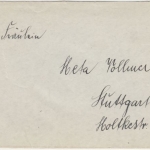 Fräulein
Meta Vollmer
Stuttgart
Moltkestr